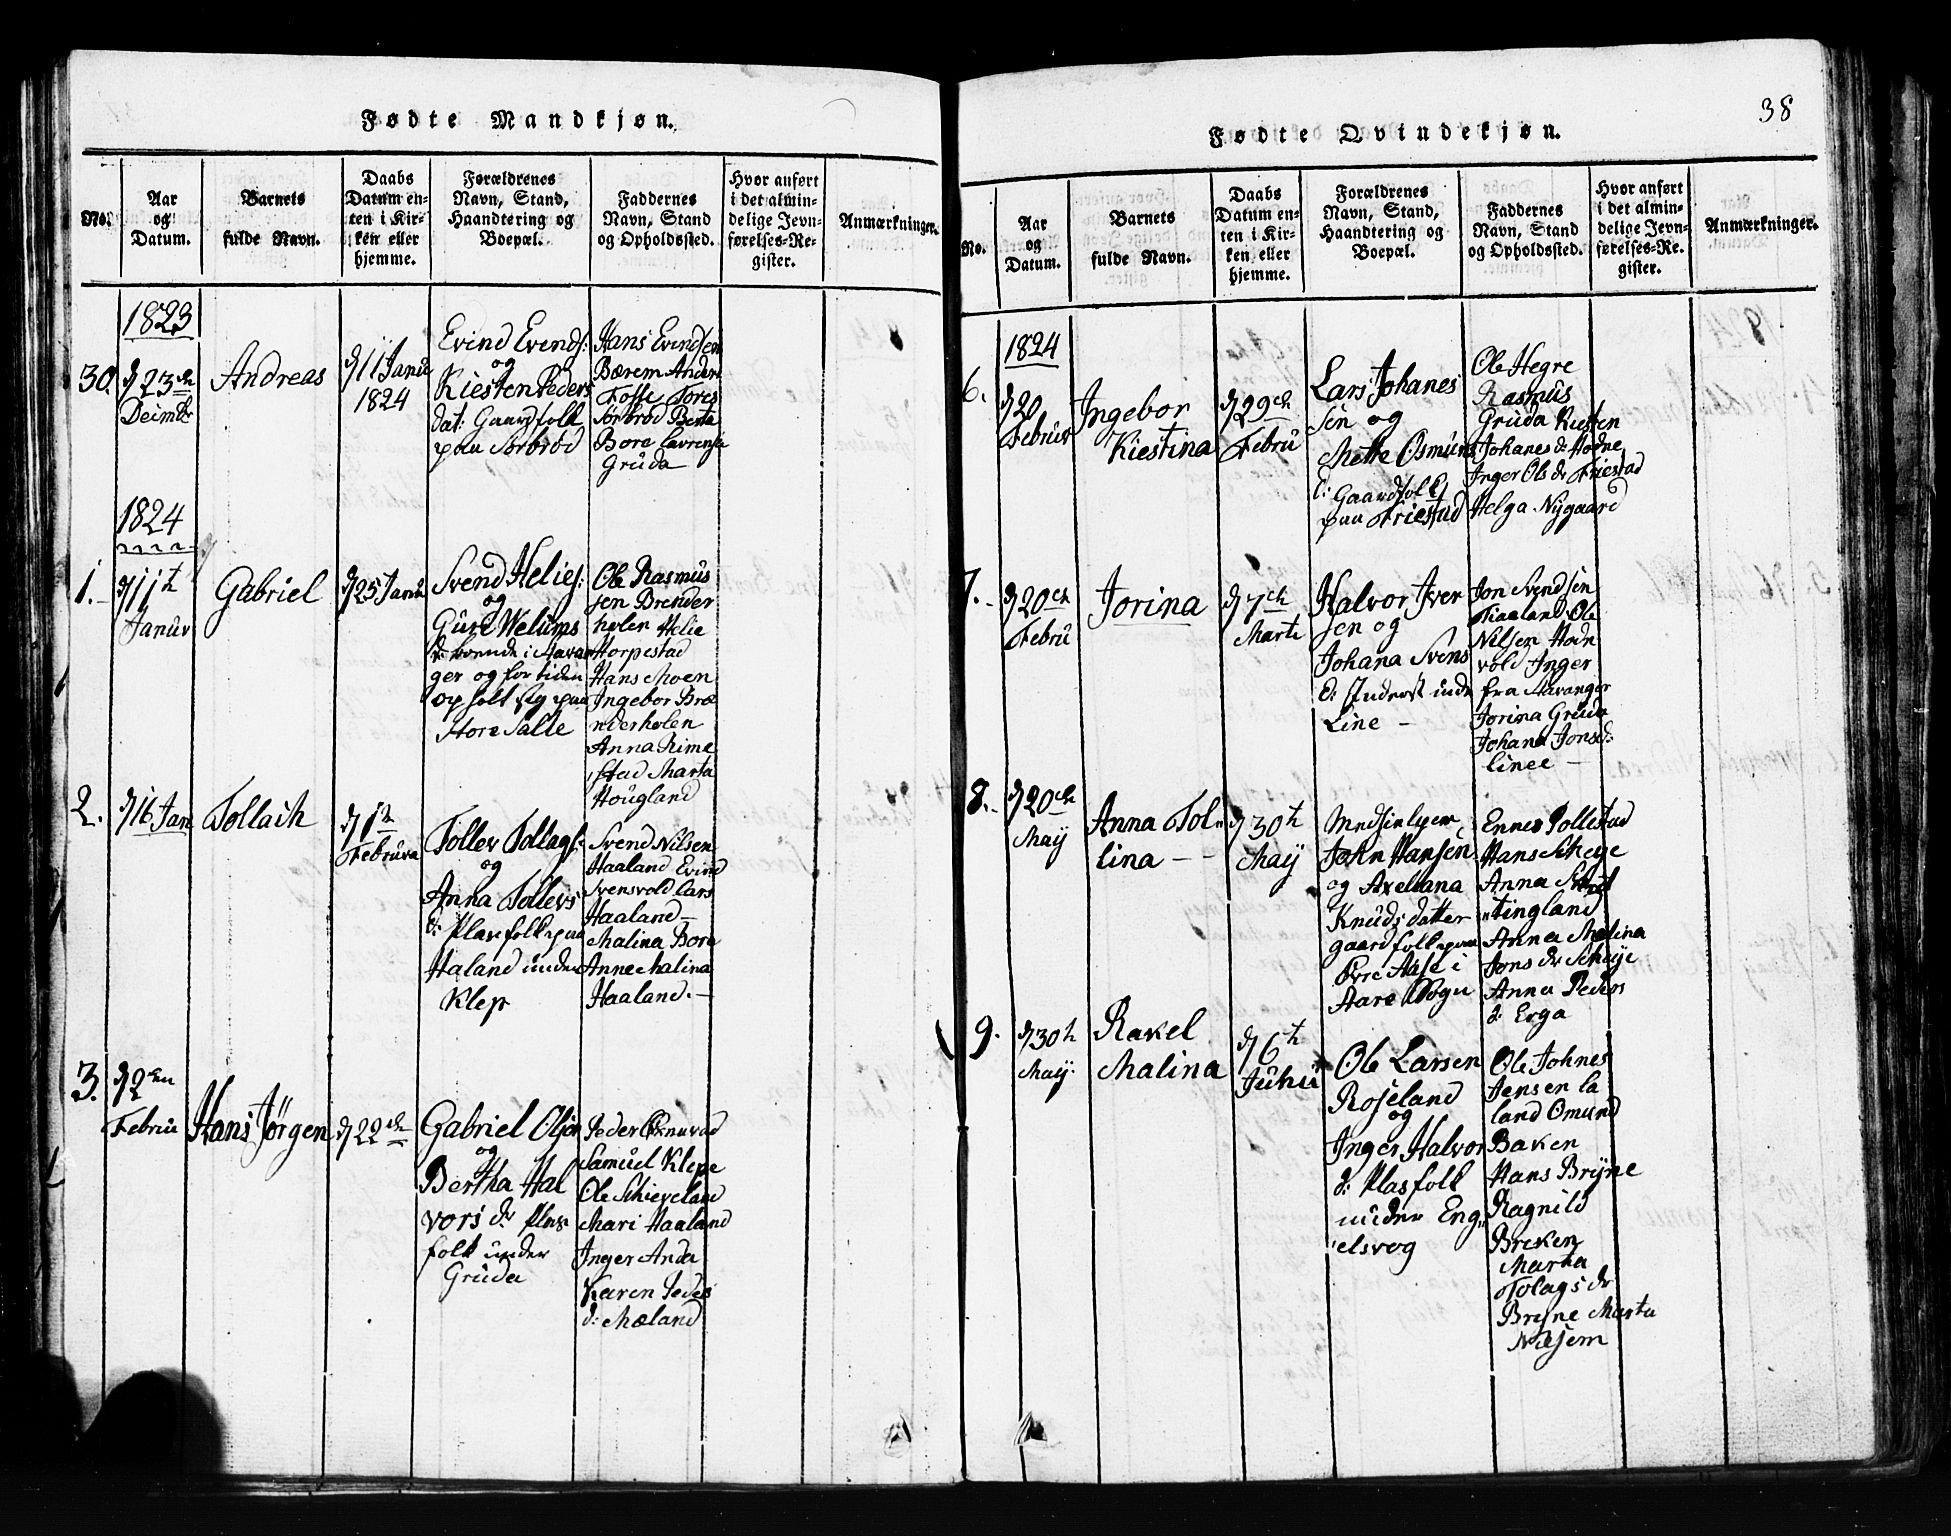 Fødte Mandkjøn.
No.
Aar
og
Datum.
Barnets
fulde Navn.
Daabs
Datum en-
ten i Kir-
ken eller
hjemme.
Forældrenes
Navn, Stand,
Haandtering og
Boepæl.
Faddernes
Navn, Stand
og Opholdssted.
Hvor anført
i det almin-
delige Jevn-
førelses-Re-
gister.
Anmærkninger.
1823
30.
d 23de
Decimbr
Andreas
d 11 Janu
1824
Evind Evends:
og
Kiesten Peders
dat: Gaardfolk
paa Sørbrød
Hans Evindsen
Bærem Anders
Fosse Tores
Sørbrød Berta
Bore Lavrensa
Gruda
1824
1.
d 11t
Januv
Gabriel
d 25 Janu
Svend Helies:
og
Guri Welums
d: boende i Aavan
ger og for tiden
opholt sig paa
Store Salte
Ole Rasmus
sen Brender
holen Helie
Horpestad
Hans Moen
Ingebor Bræ
nderholen
Anna Rime
stad Marta
Hougland
2.
d 16 Jan
Tollach
d 1te
Februra
Tollev Tollags:
og
Anna Tollevs
d: Plasfolk paa
Haland under
Klep
Svend Nilsen
Haaland Evind
Svensvold Lars
Haaland
Malina Bore
Anne Malina
Haaland.
3.
d 2en
Febru
Hans Jørgen
d 22de
Gabriel Olsen
og
Bertha Hal
vors dr Plas
folk under
Gruda
Peder
Samuel Klepe
Ole Schieveland
Mari Haaland
Inger Anda
Karen Peders
d: Mæland
Fødte Qvindekjøn.
38
No.
Aar
og
Datum.
Barnets
fulde Navn.
Daabs
Datum en-
ten i Kir-
ken eller
hjemme.
Forældrenes
Navn, Stand,
Haandtering og
Boepæl.
Faddernes
Navn, Stand
og Opholdssted.
Hvor anført
i det almin-
delige Jevn-
førelses-Re-
gister.
Anmærkninger.
1824
6.
d 20
Februv
Ingebor
Kiestina
d 29de
Febru
Lars Johanes
sen og
Mette Osmuns
d: Gaardfolk
paa Friestad
Ole Hegre
Rasmus
Gruda Kiesten
Johanes d: Hodne
Inger Ols dr Friestad
Helga Nygaard
7.
d 20de
Febru
Jorina
d 7de
Marti
Halvor Iver
sen og
Johana Svens
d: Inderst inde
Line
Jon Svendsen
Tiaaland Ole
Nilsen Hodn
vold Inger
fra Aavanger
Jorina Gruda
Johana Jonsd:
Linee
8.
d 20de
May
Anna Tol-
lina
d 30t
May
John Hansen
og Axeliana
Knuds datter
gaardfolk paa
Øvre Aase i
Aare Sogn
Ennes Pollestad
Hans Scheye
Anna
tingland
Anna Malina
Jons dr Scheye
Anna Peders
d: Erga
9.
d 30t
May.
Rakel
Malina
d 6t
Juhui
Ole Larsen
Roseland
og
Inger Halvor
d: Plasfolk
under Eng
elsvog
Ole Johnes
Jensen La
land Omund
Baken
Hans Bryne
Ragnild
Breken
Marta
Tolags dr
Bryne Marta
Nilsem